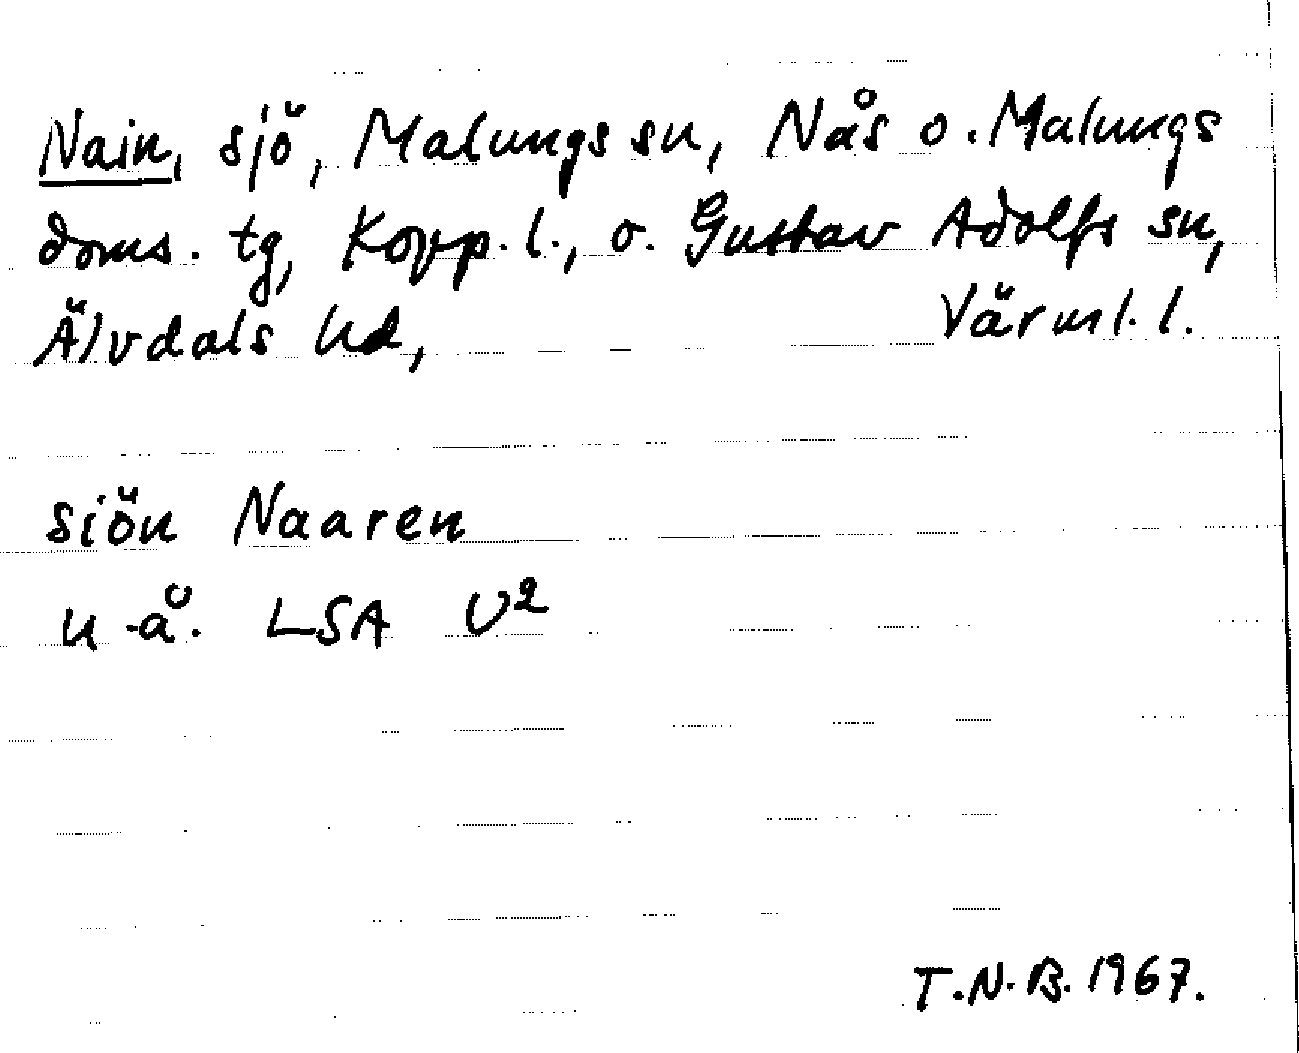 Nain, sjö, Malungs sn, Nås o. Malungs
doms. tg, Kopp. l., o. Gustav Adolfs sn,
Älvdals hd, Värml. l.
siön Naaren
u.å. LSA U²
T.N.B. 1967.